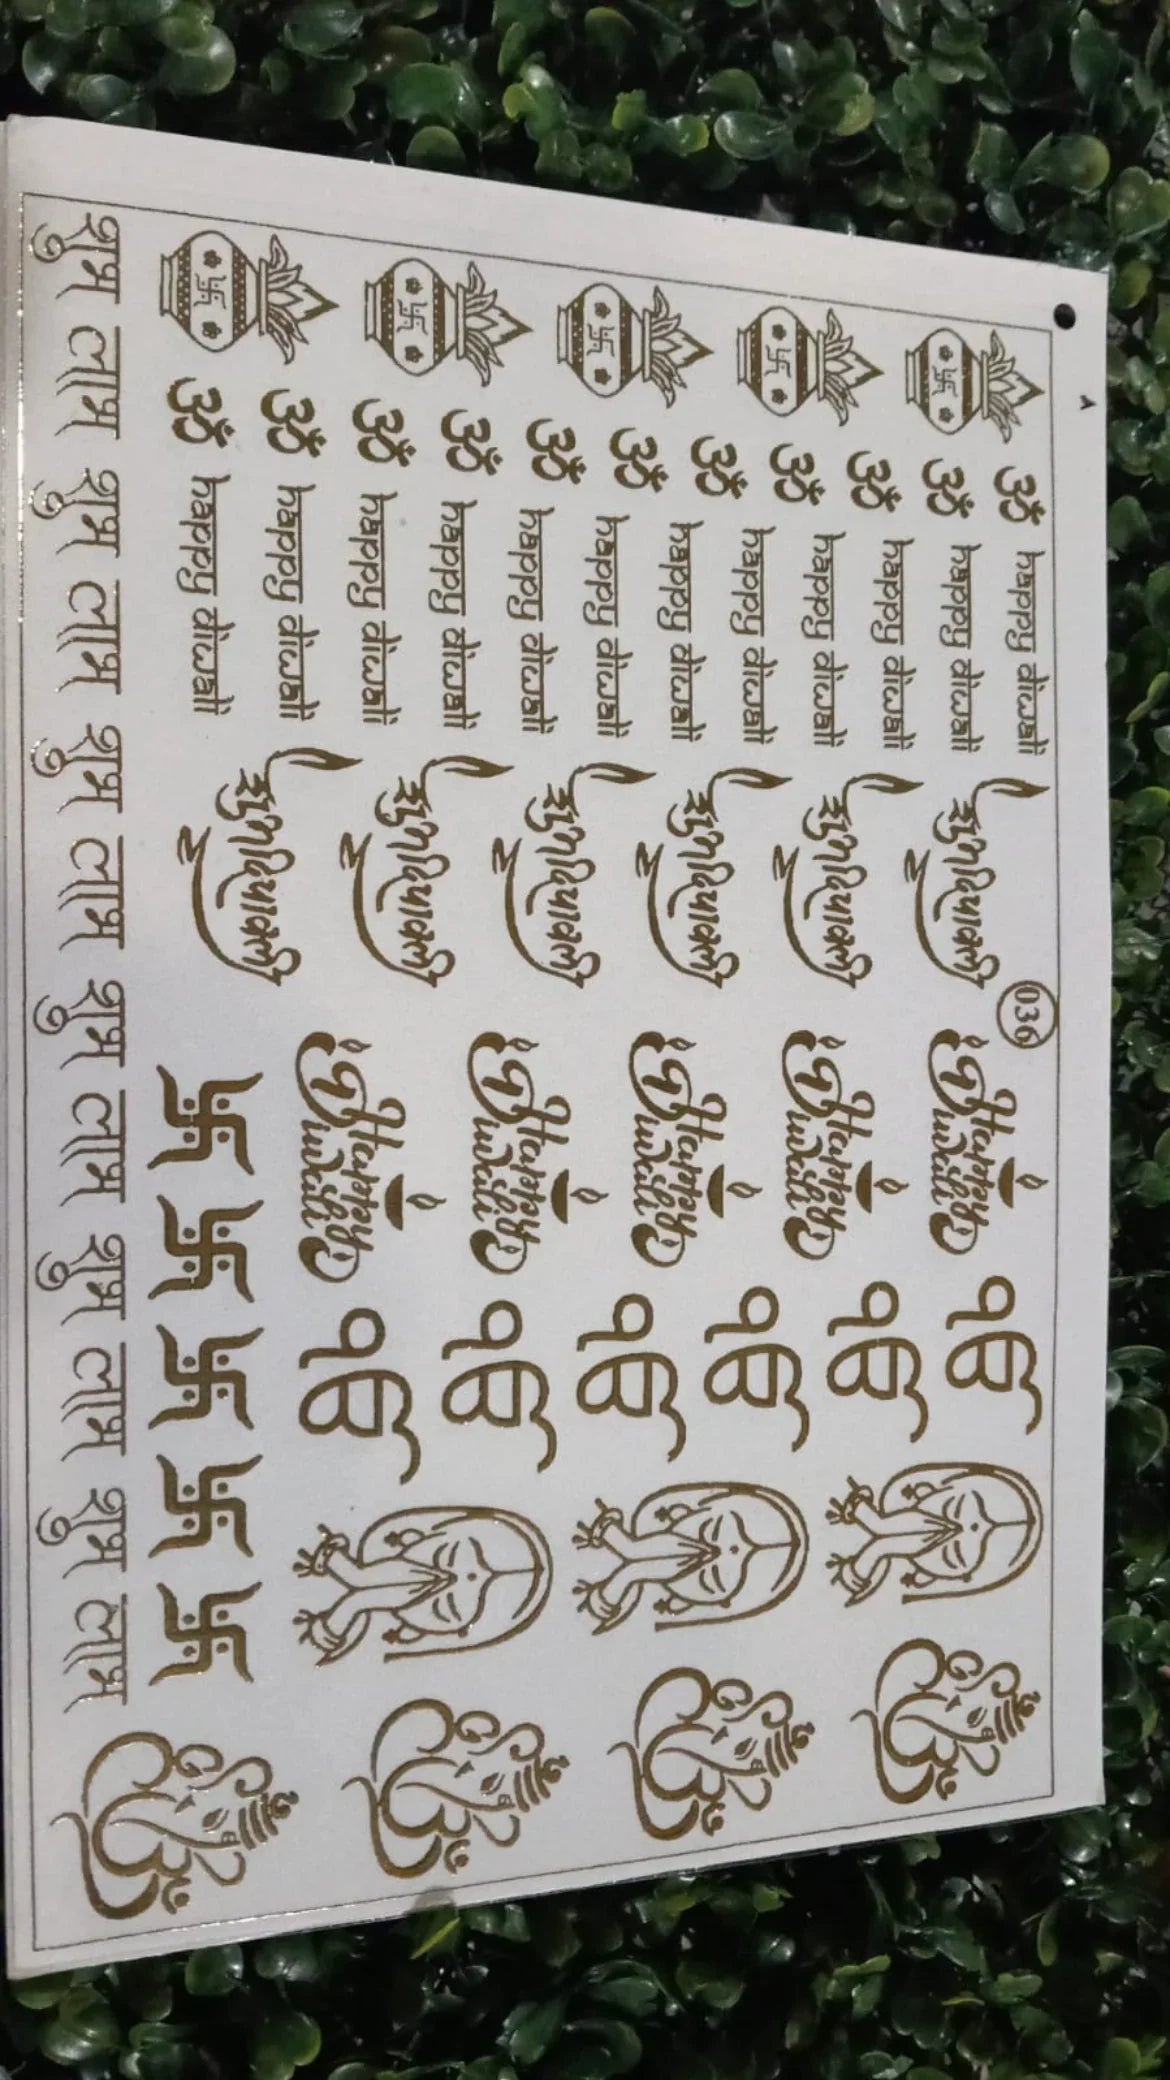 036
ॐ
ॐ
ॐ
ॐ
ॐ
ॐ
ॐ
ॐ
ॐ
ॐ
ॐ
happy diwali
happy diwali
happy diwali
happy diwali
happy diwali
happy diwali
happy diwali
happy diwali
happy diwali
happy diwali
happy diwali
happy diwali
शुभ दिपावली
शुभ दिपावली
शुभ दिपावली
शुभ दिपावली
शुभ दिपावली
शुभ दिपावली
Happy
Diwali
Happy
Diwali
Happy
Diwali
Happy
Diwali
Happy
Diwali
ੴ
ੴ
ੴ
ੴ
ੴ
ੴ
शुभ लाभ शुभ लाभ शुभ लाभ शुभ लाभ शुभ लाभ शुभ लाभ